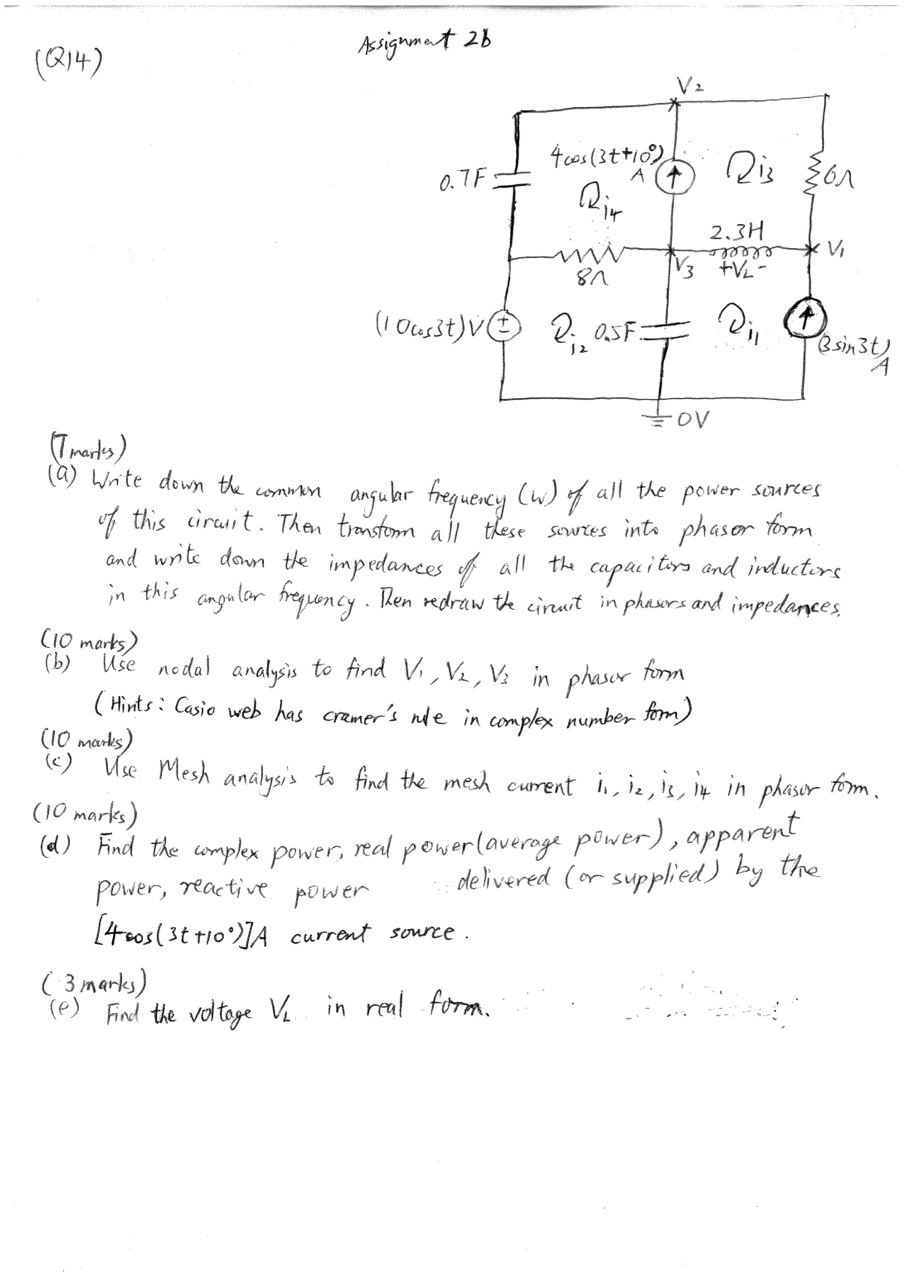 Assignment 2b
(Q14)
V2
4cos(3t+10°)
A
0.7F
i4
i3
6Ω
2.3H
V1
8Ω
V3
+VL-
(10cos3t)V
±
i2
0.5F
i1
(3sin3t)
A
0V
(7 marks)
(a) Write down the common angular frequency (w) of all the power sources
of this circuit. Then transform all these sources into phasor form
and write down the impedances of all the capacitors and inductors
in this angular frequency. Then redraw the circuit in phasors and impedances.
(10 marks)
(b) Use nodal analysis to find V1, V2, V3 in phasor form
(Hints: Casio web has cramer's rule in complex number form)
(10 marks)
(c) Use Mesh analysis to find the mesh current i1, i2, i3, i4 in phasor form.
(10 marks)
(d) Find the complex power, real power(average power), apparent
power, reactive power delivered (or supplied) by the
[4cos(3t+10°)]A current source.
(3 marks)
(e) Find the voltage VL in real form.